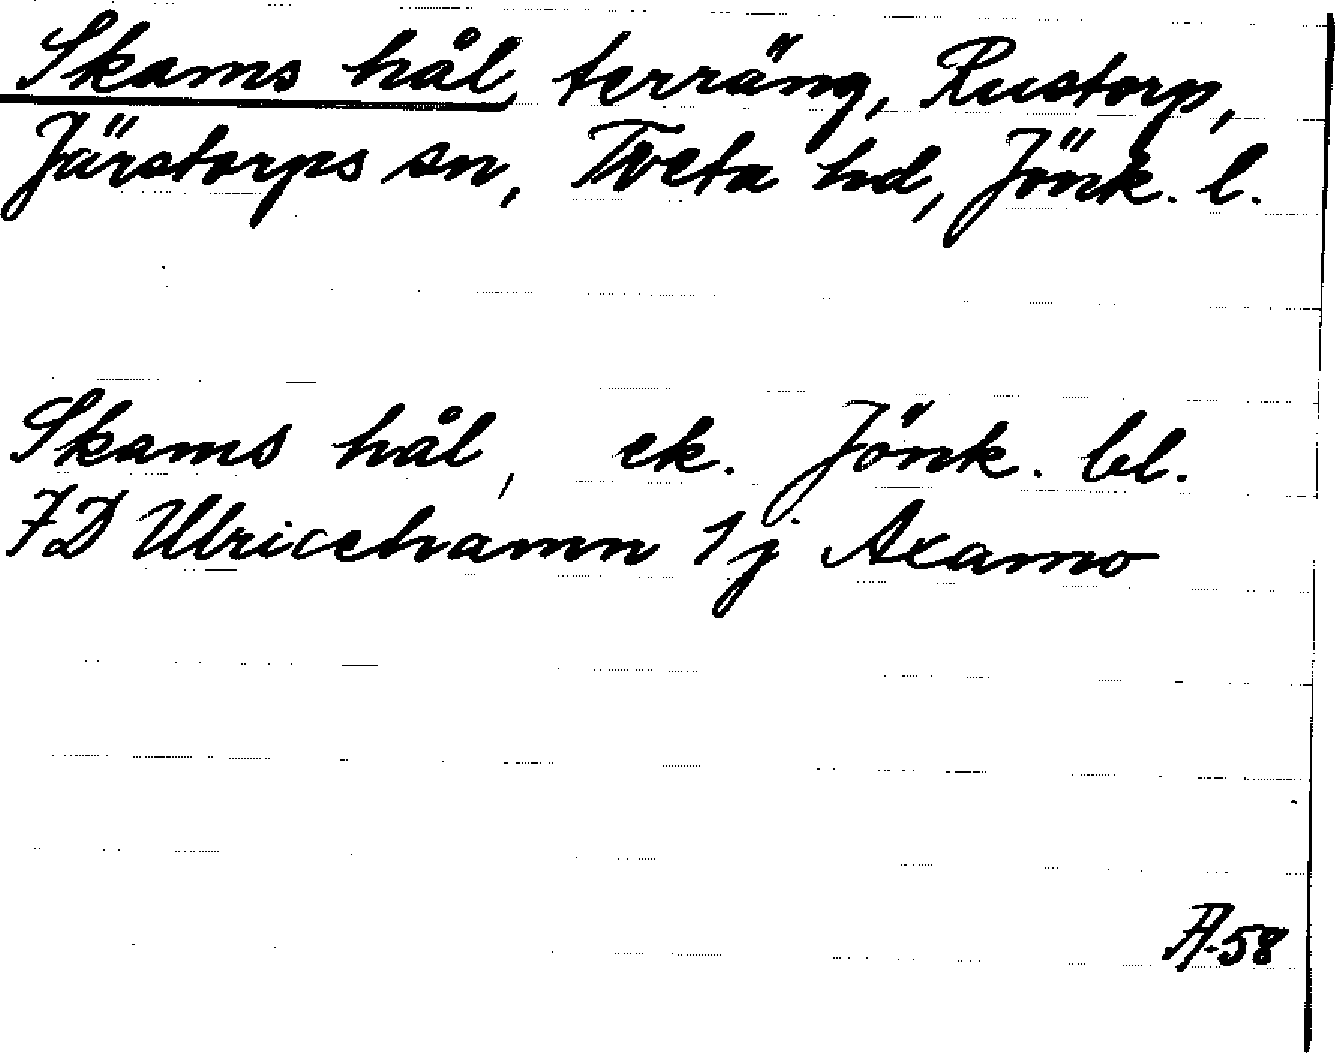 Skams hål, terräng, Rustorp,
Järstorps sn, Tveta hd, Jönk. l.
Skams hål, ek. Jönk. bl.
7D Ulricehamn 1j Axamo
A-58